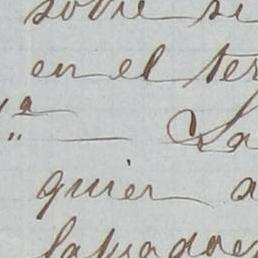 sobre si
en el ter
1.ª — La
quier a